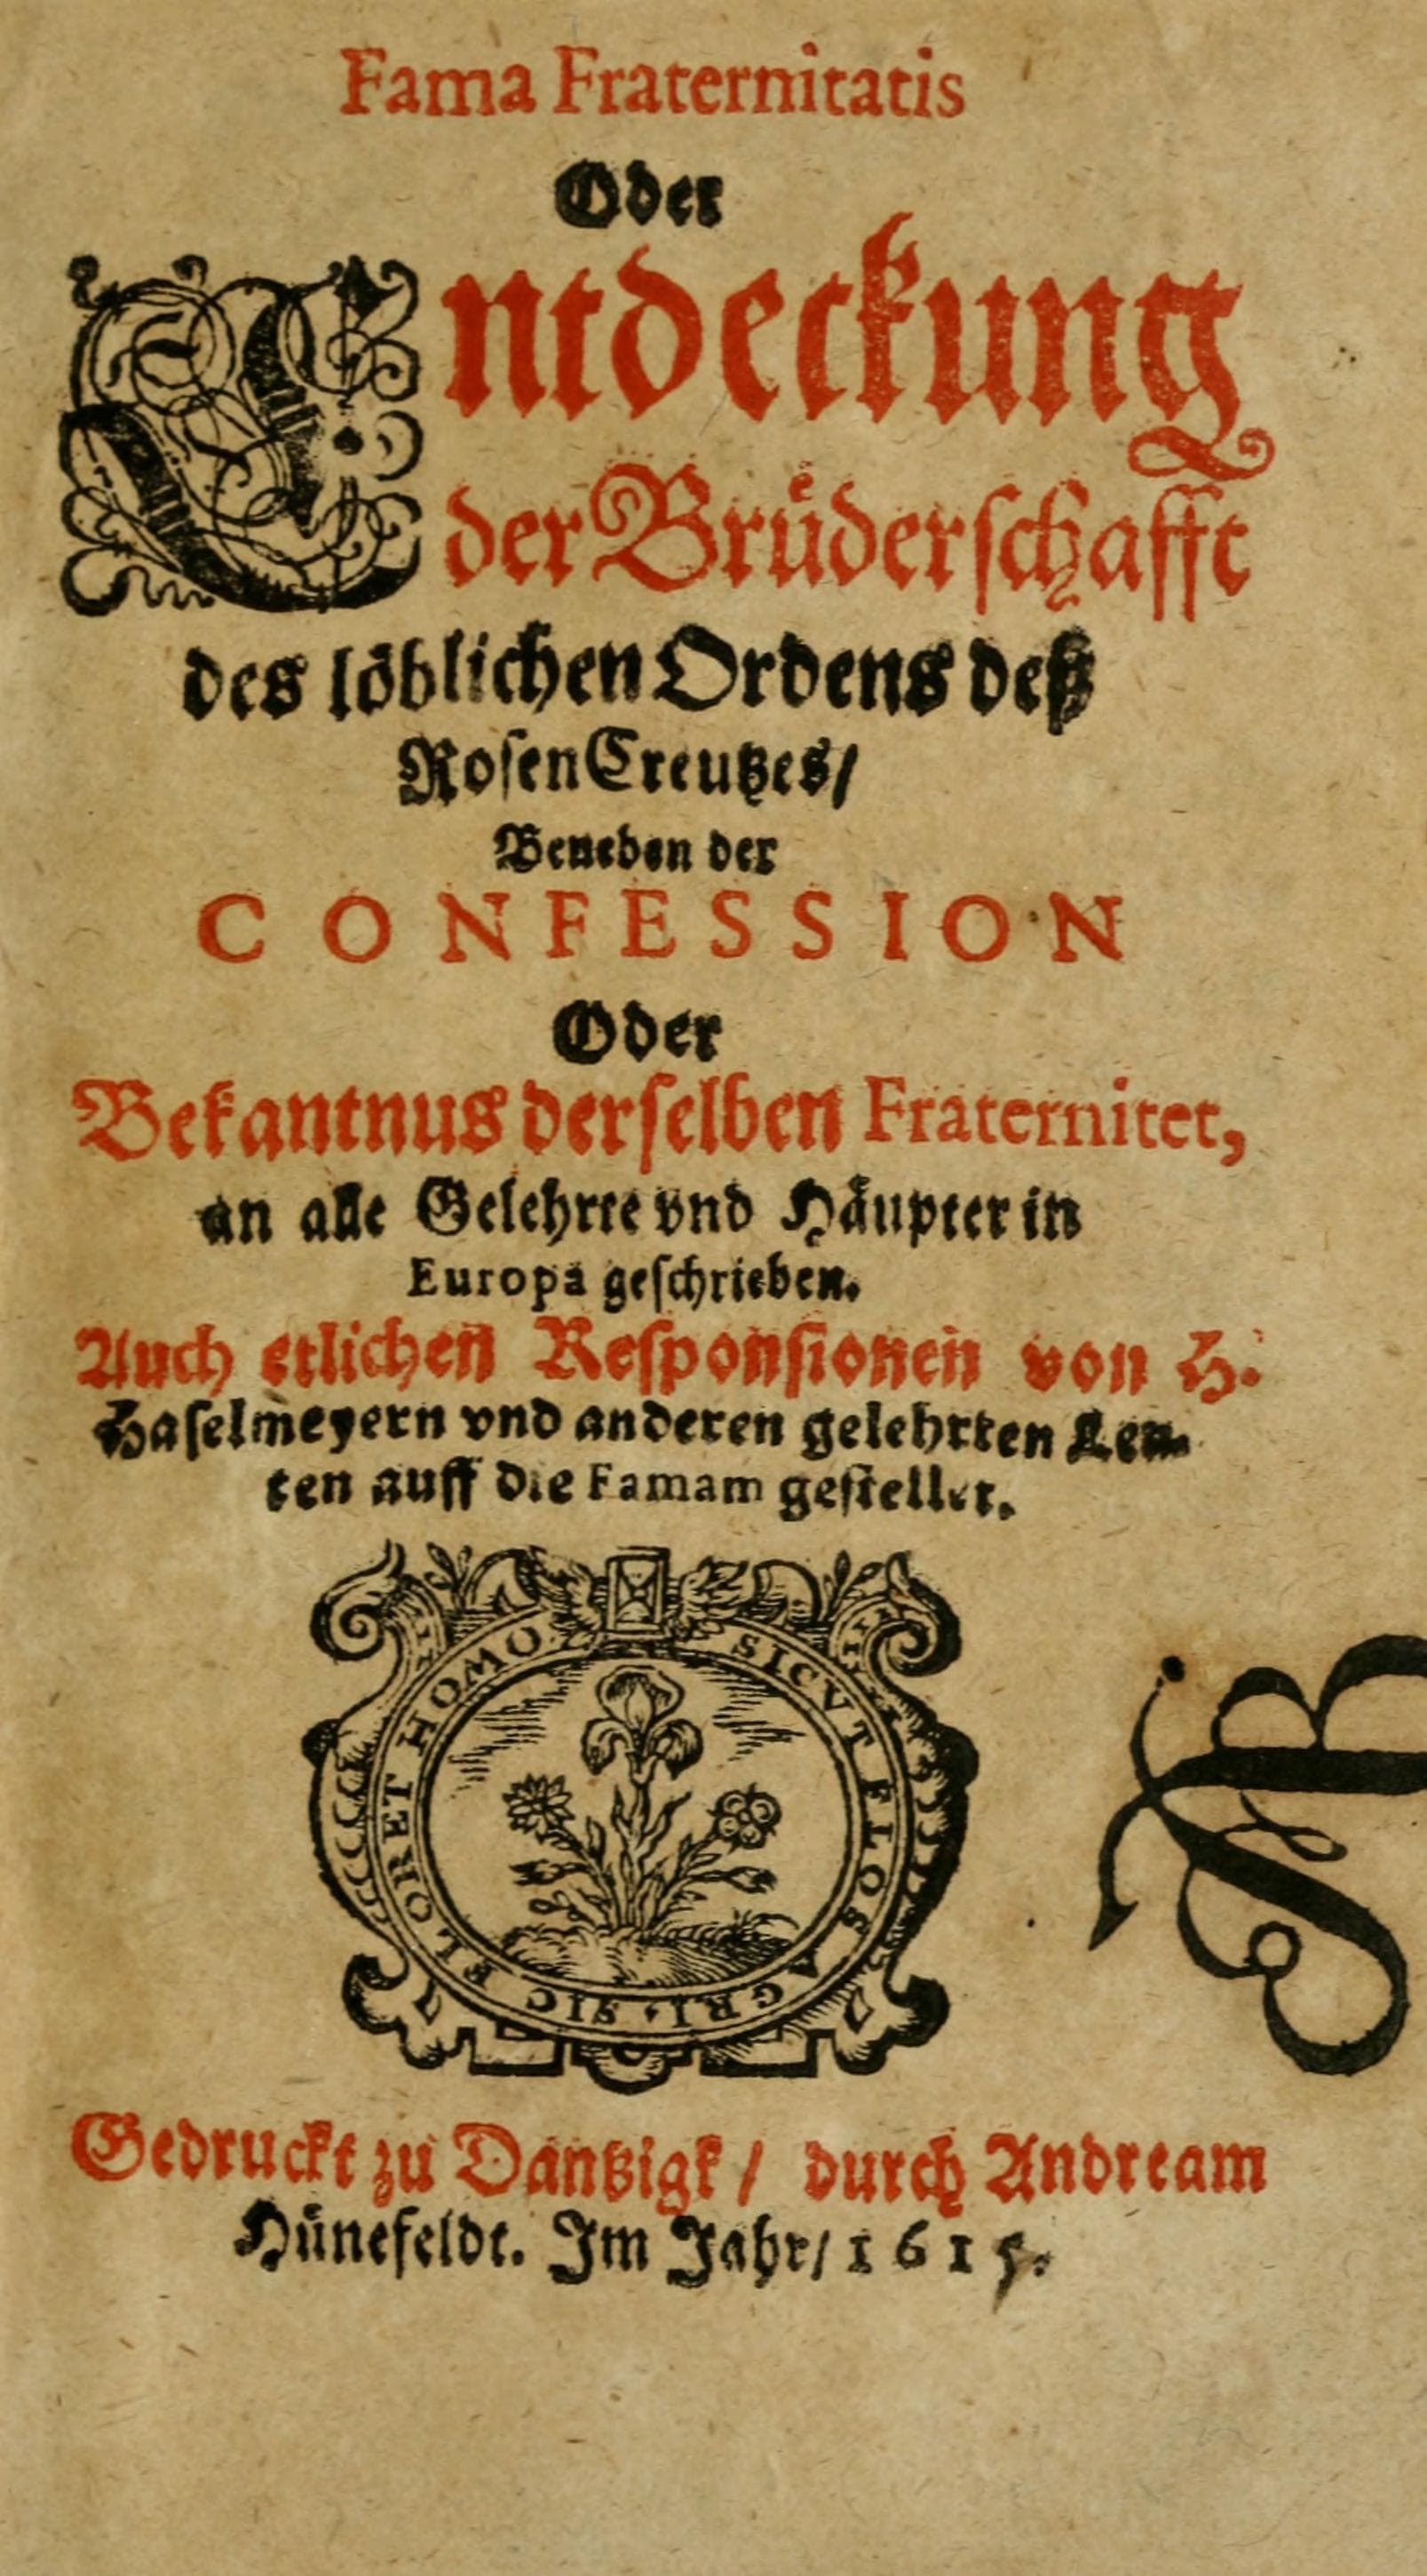 Fama Fraternitatis
Oder
Entdeckung
der Brüderschafft
des löblichen Ordens deß
RosenCreutzes/
Beneben der
CONFESSION
Oder
Bekantnus derselben Fraternitet,
an alle Gelehrte vnd Häupter in
Europa geschrieben.
Auch etlichen Responsionen von H.
Haselmeyern vnd anderen gelehrten Leu-
ten auff die Famam gestellet.
SICVT FLOS AGRI, SIC FLORET HOMO
Gedruckt zu Dantzigk/ durch Andream
Hünefeldt. Im Jahr/ 1615.